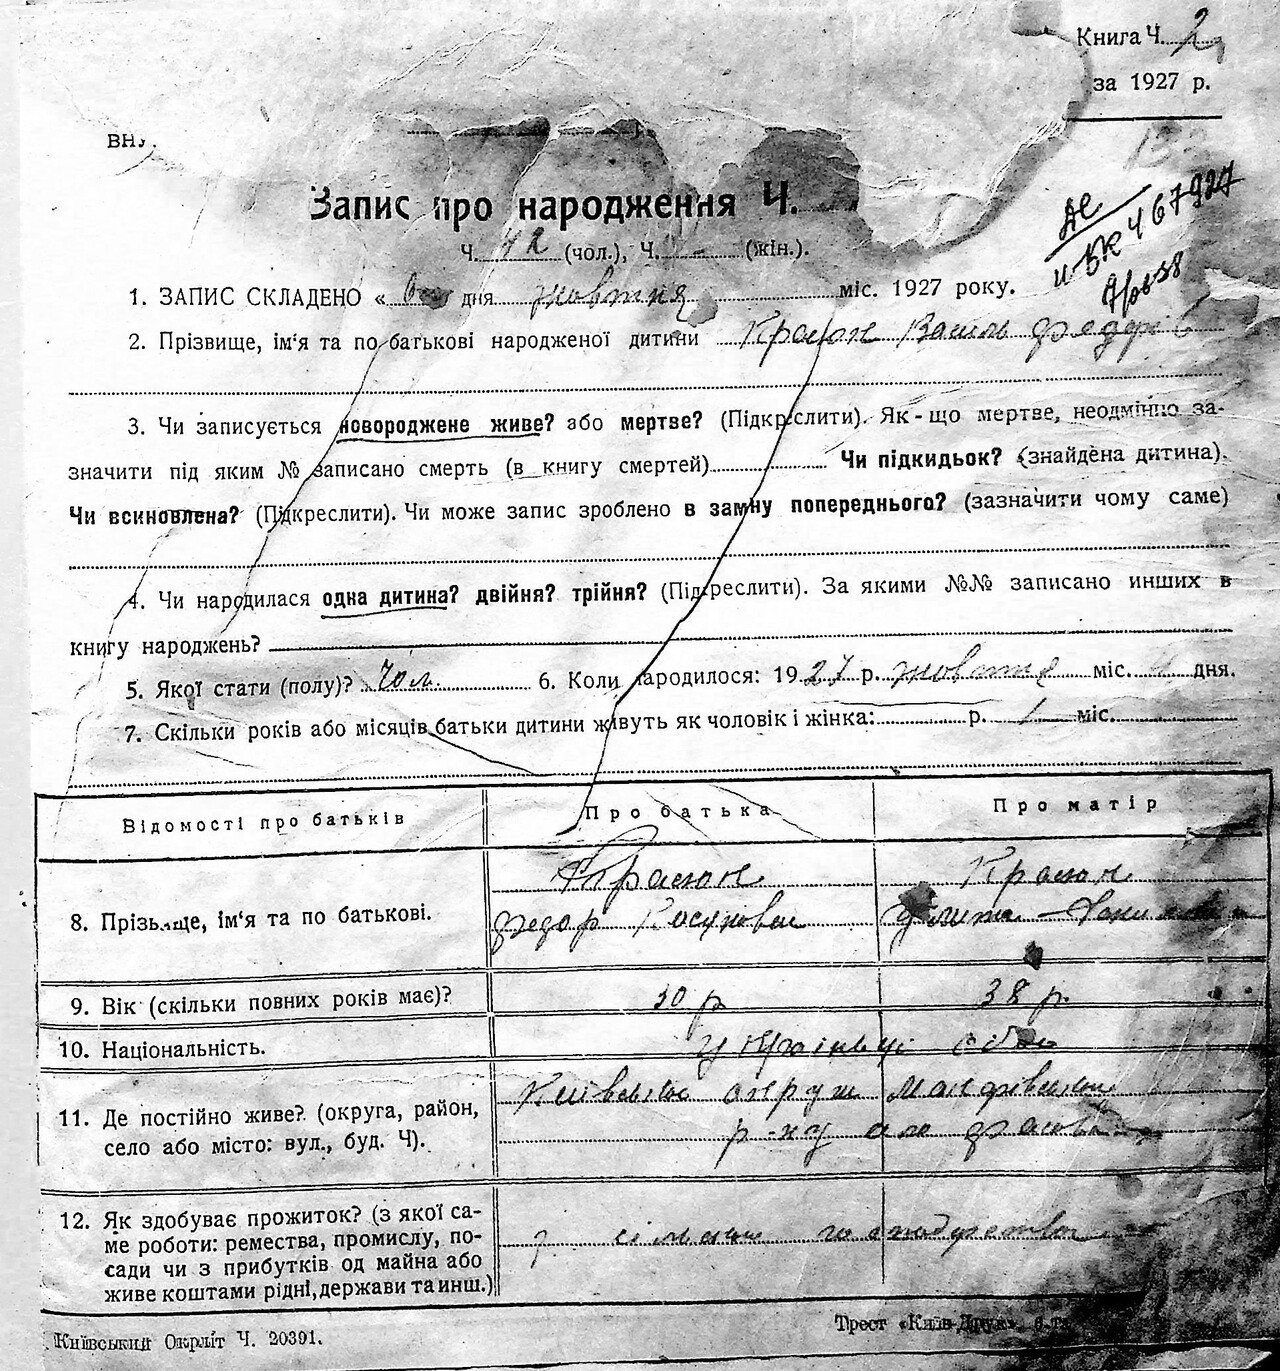 Книга Ч. 2
за 1927 р.
Запис про народження Ч.
Ч. 42 (чол.), Ч. - (жін.).
1. ЗАПИС СКЛАДЕНО « 6 » дня жовтня міс. 1927 року.
2. Прізвище, ім'я та по батькові народженої дитини Красюк Василь
3. Чи записується новороджене живе? або мертве? (Підкреслити). Як-що мертве, неодмінно за-
значити під яким № записано смерть (в книгу смертей) Чи підкидьок? (знайдена дитина).
Чи всиновлена? (Підкреслити). Чи може запис зроблено в заміну попереднього? (зазначити чому саме)
4. Чи народилася одна дитина? двійня? трійня? (Підкреслити). За якими №№ записано инших в
книгу народжень?
5. Якої стати (полу)? Чол. 6. Коли народилося: 1927 р. жовтня міс. дня.
7. Скільки років або місяців батьки дитини живуть як чоловік і жінка: р. 1 міс.
Відомості про батьків Про батька Про матір
8. Прізвище, ім'я та по батькові. Красюк Красюк
Федор
9. Вік (скільки повних років має)? 30 р 38 р.
10. Національність. Українці обоє
11. Де постійно живе? (округа, район, Київська округ Макарівський
село або місто: вул., буд. Ч). р-ну
12. Як здобуває прожиток? (з якої са-
ме роботи: ремества, промислу, по- сільське господарство
сади чи з прибутків од майна або
живе коштами рідні, держави та инш.)
Київський Окрліт Ч. 20391.
Трест «Київ-Друк»